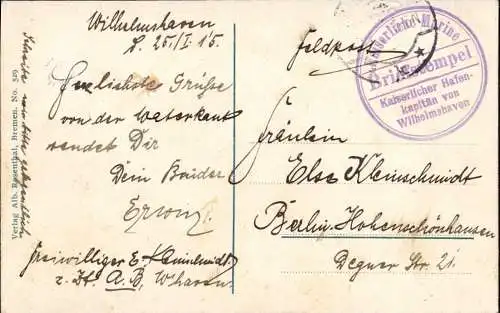 Wilhelmshaven
d. 25./I. 15.
Herlichste Grüße
von der Waterkant
sendet Dir
Dein Bruder
Erwin.
Freiwilliger E. Kleinschmidt
z. Zt. A. B. W'haven
Schreibe mir bitte
Verlag Alb. Rosenthal, Bremen. No. 569
Feldpost
Kaiserliche Marine
Briefstempel
Kaiserlicher Hafen-
kapitän von
Wilhelmshaven
Fräulein
Else Kleinschmidt
Berlin-Hohenschönhausen
Degner Str. 21.